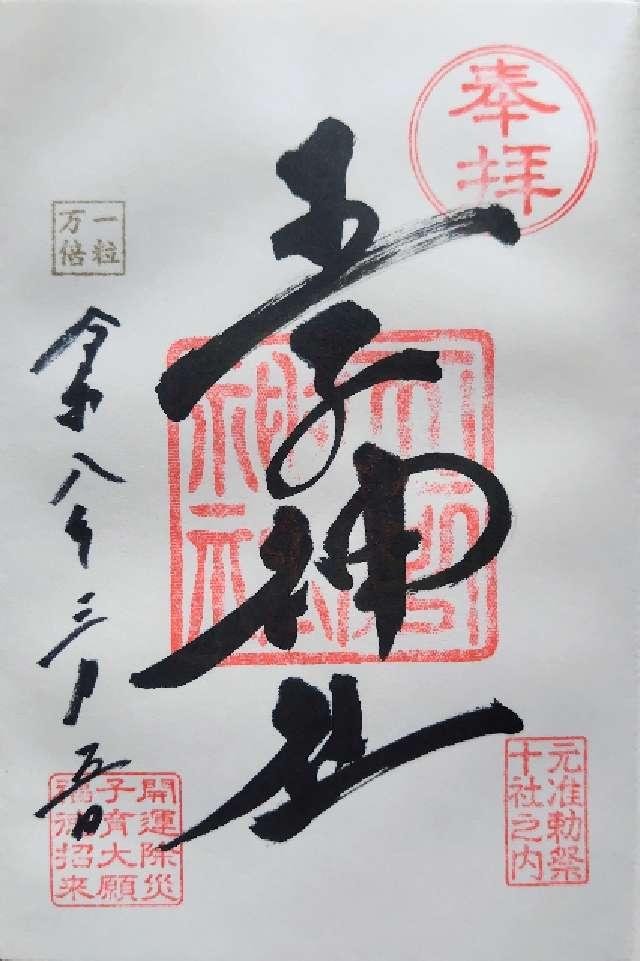 奉拝
王子神社
一粒
万倍
令和八年三月五日
元准勅祭
十社之内
開運除災
子育大願
福徳招来